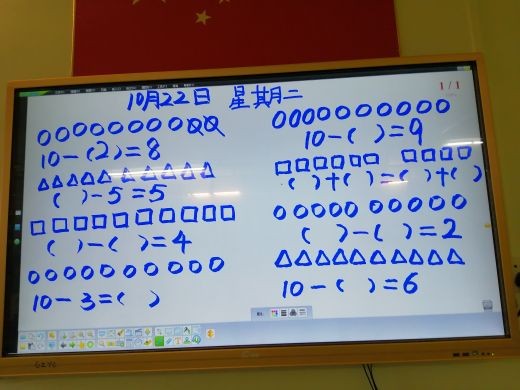 10月22日 星期二
1/1
10-(2)=8
( )-5=5
( )-( )=4
10-3=( )
10-( )=9
( )+( )=( )+( )
( )-( )=2
10-( )=6